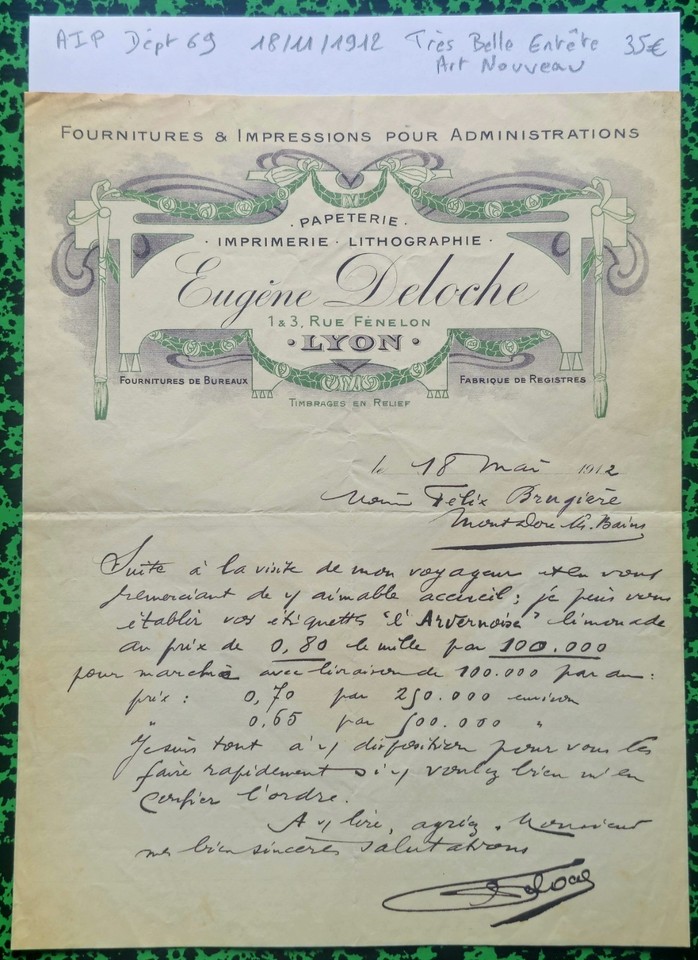 AIP Dépt 69 18/11/1912 Très Belle Entête 35€
Art Nouveau
FOURNITURES & IMPRESSIONS POUR ADMINISTRATIONS
· PAPETERIE ·
· IMPRIMERIE · LITHOGRAPHIE ·
Eugène Deloche
1 & 3, RUE FÉNELON
· LYON ·
FOURNITURES DE BUREAUX
FABRIQUE DE REGISTRES
TIMBRAGES EN RELIEF
le 18 Mai 1912
Félix Brugière
Suite à la visite de mon voyageur et en vous
remerciant de v/ aimable accueil ; je puis vous
établir vos étiquettes "l'Arvernoise" limonade
au prix de 0,80 le mille par 100.000
pour marché avec livraison de 100.000 par an :
prix : 0,70 par 250.000 environ
" 0,65 par 500.000 "
Je suis tout à v/ disposition pour vous les
faire rapidement si v/ voulez bien m'en
confier l'ordre.
A v/ lire, agréez, Monsieur
mes bien sincères salutations
Deloche